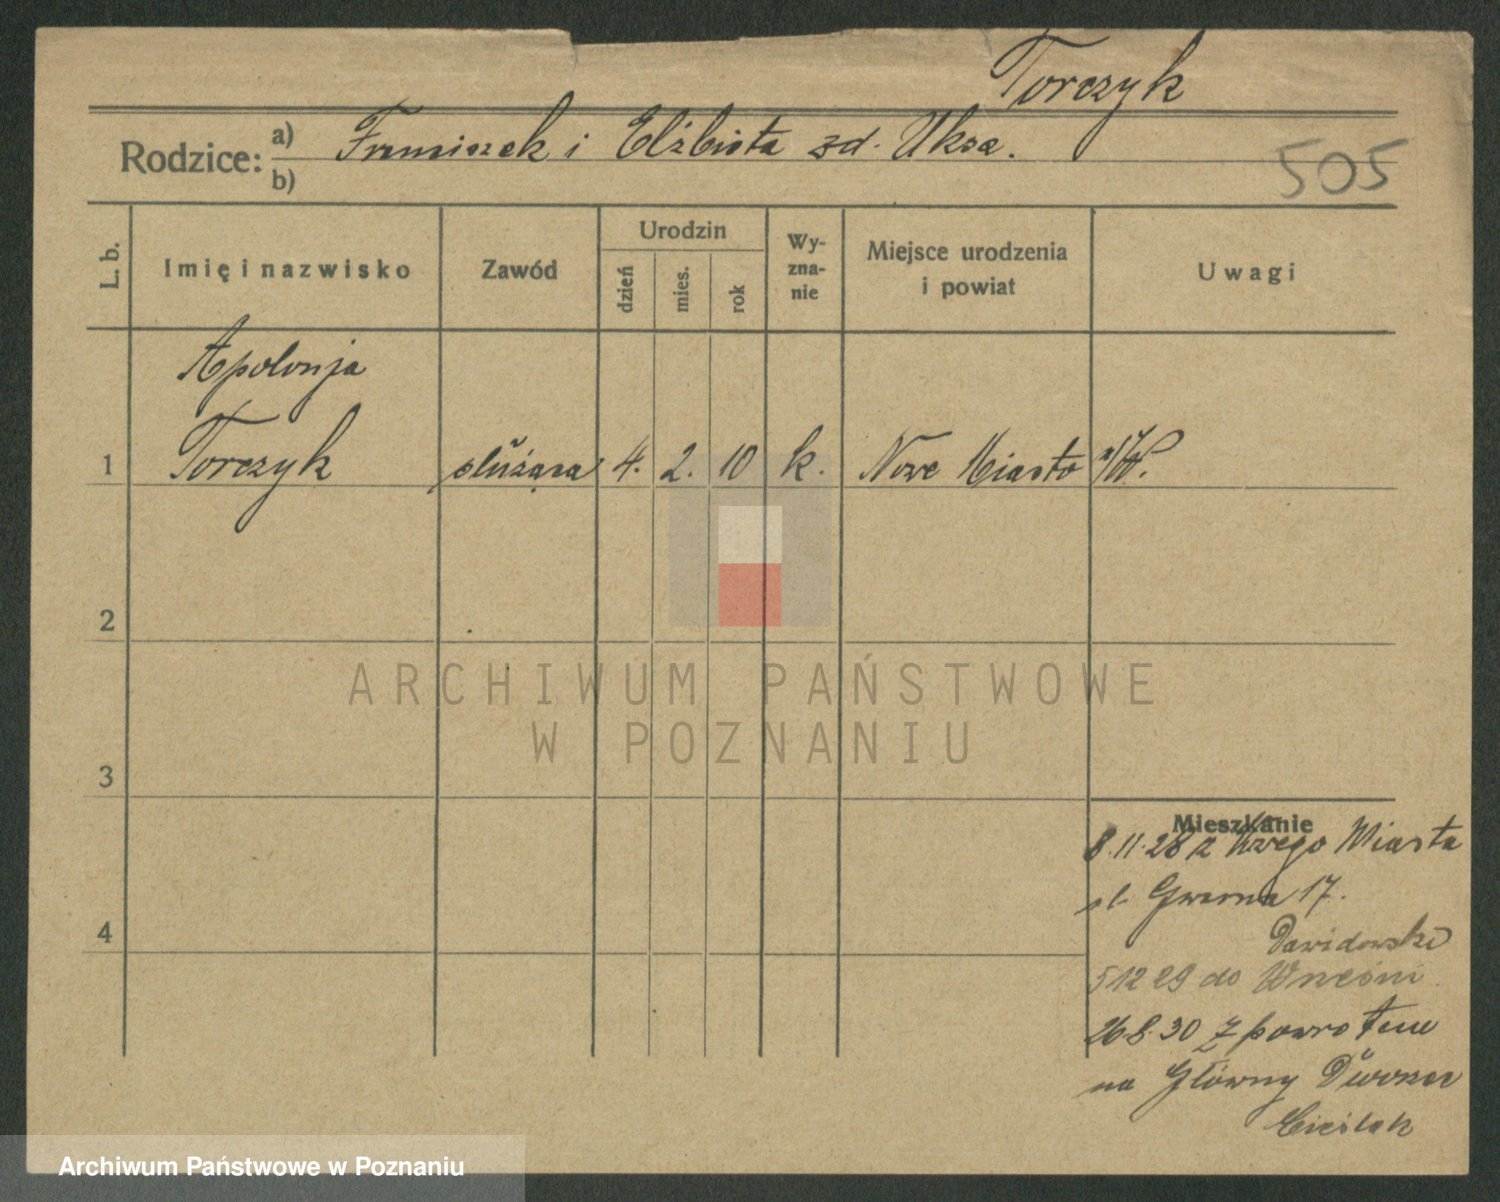 Torczyk
Rodzice: a) Franciszek i Elżbieta zd. Uksa.
b)
505
L. b.
Imię i nazwisko
Zawód
Urodzin
dzień
mies.
rok
Wy-
zna-
nie
Miejsce urodzenia
i powiat
Uwagi
Apolonja
1 Torczyk służąca 4. 2. 10 k. Nowe Miasto n/W.
2
3
4
ARCHIWUM PAŃSTWOWE
W POZNANIU
Mieszkanie
8.11.28 z Nwego Miasta
ul. Gwarna 17.
Dawidowski
5 12 29 do Wrześni
26.8.30 z powrotem
na Główny Dworzec
Cieślak
Archiwum Państwowe w Poznaniu